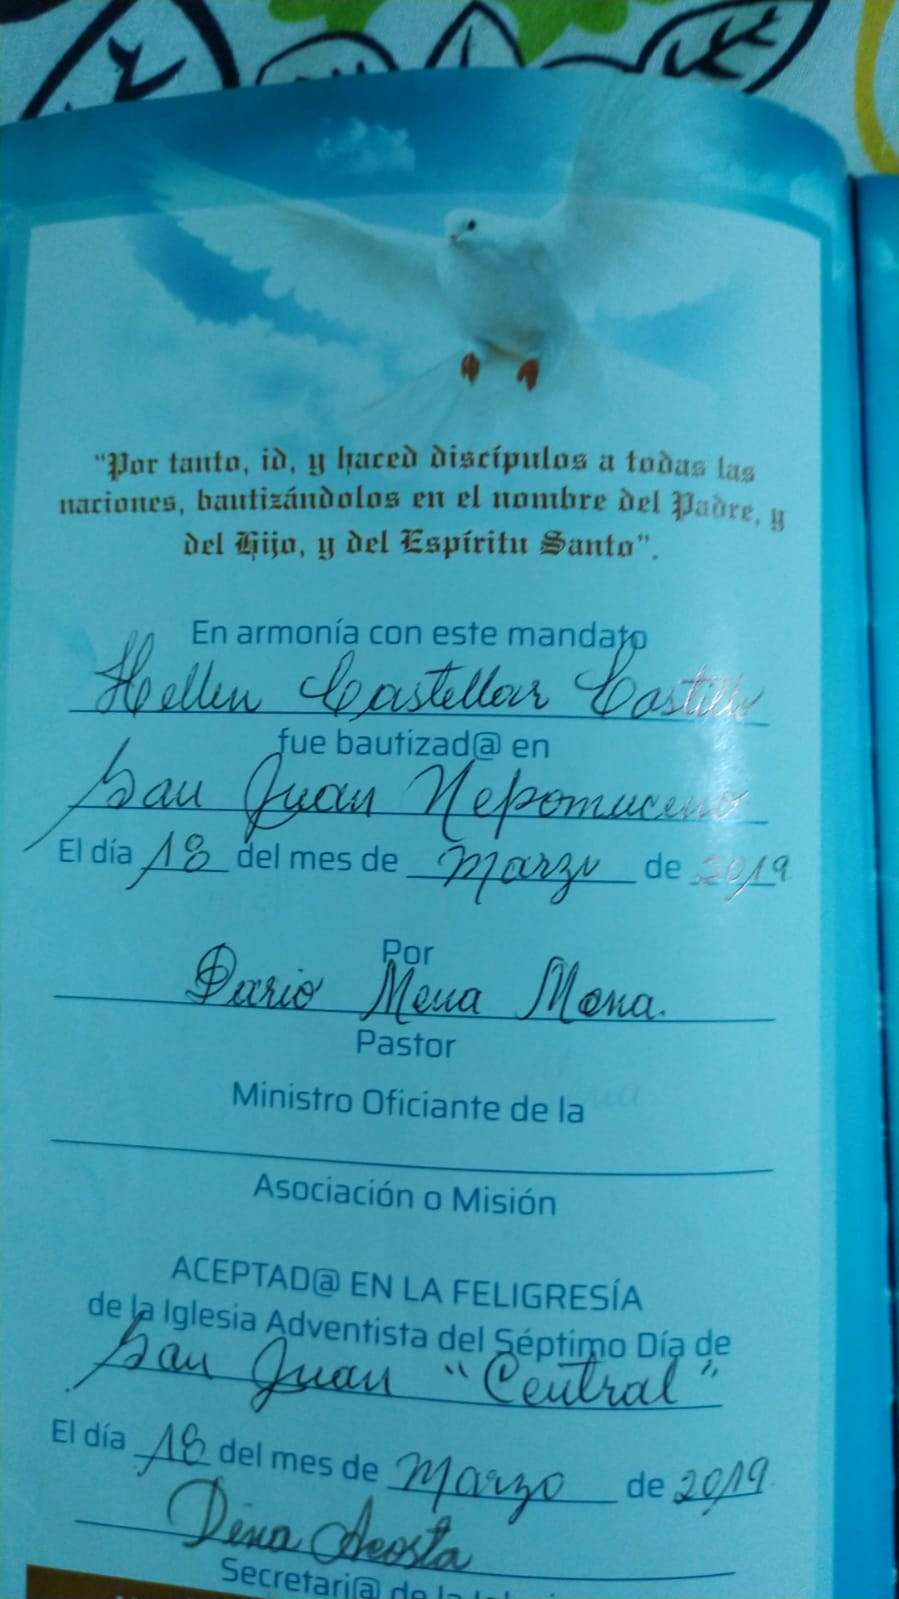 "Por tanto, id, y haced discípulos a todas las
naciones, bautizándolos en el nombre del Padre, y
del Hijo, y del Espíritu Santo".
En armonía con este mandato
Hellen Castellar Castillo
fue bautizad@ en
San Juan Nepomuceno
El día 18 del mes de Marzo de 2019
Por
Dario Mena Mena.
Pastor
Ministro Oficiante de la
Asociación o Misión
ACEPTAD@ EN LA FELIGRESÍA
de la Iglesia Adventista del Séptimo Día de
San Juan "Central"
El día 18 del mes de Marzo de 2019
Dina Acosta
Secretari@ de la